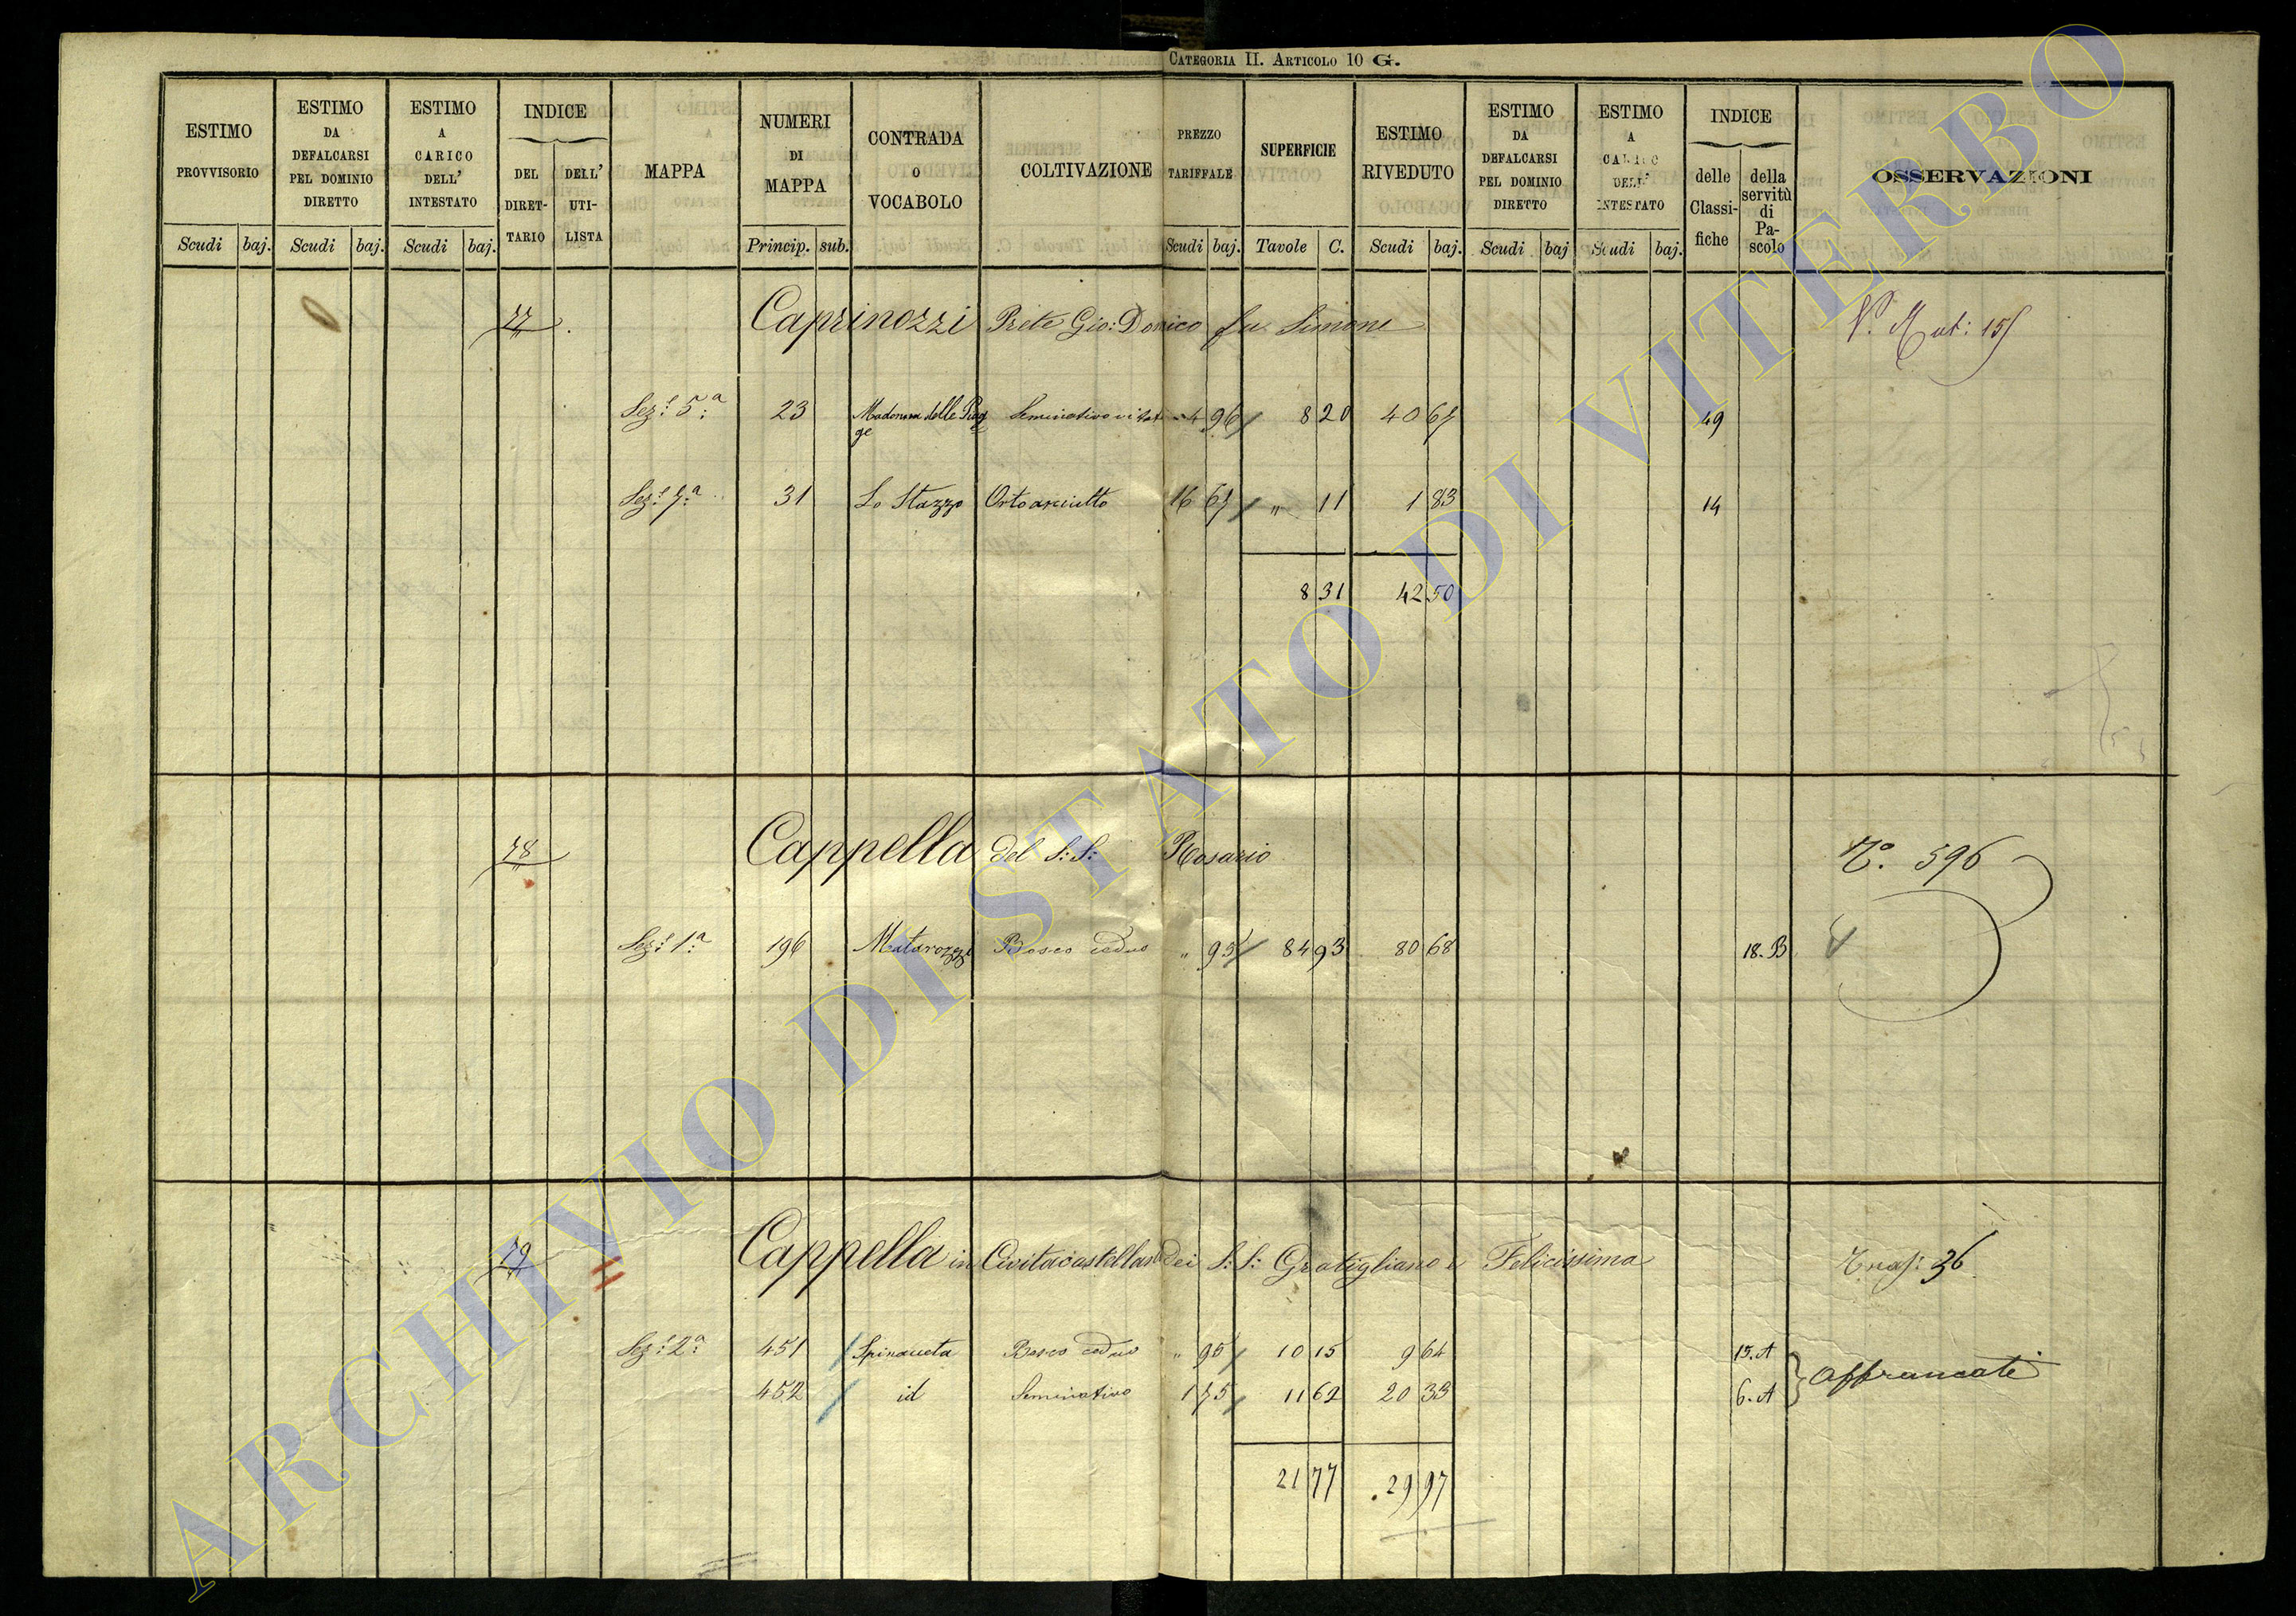 CATEGORIA II. ARTICOLO 10 G.
ESTIMO PROVVISORIO
Scudi baj.
ESTIMO DA DEFALCARSI PEL DOMINIO DIRETTO
Scudi baj.
ESTIMO A CARICO DELL' INTESTATO
Scudi baj.
INDICE
DEL DIRET-TARIO
DELL' UTI-LISTA
MAPPA
NUMERI DI MAPPA
Princip. sub.
CONTRADA O VOCABOLO
COLTIVAZIONE
PREZZO TARIFFALE
Scudi baj.
SUPERFICIE
Tavole C.
ESTIMO RIVEDUTO
Scudi baj.
ESTIMO DA DEFALCARSI PEL DOMINIO DIRETTO
Scudi baj
ESTIMO A CARICO DELL' INTESTATO
Scudi baj.
INDICE
delle Classi-fiche
della servitù di Pa-scolo
OSSERVAZIONI
77 Caprinozzi Prete Gio: Domico fu Simone
Sez: 5:ª 23 Madonna delle Piag ge Seminativo vitat 4 96 8 20 40 67 49
Sez: 7:ª 31 Lo Stazzo Orto asciutto 16 67 " 11 1 83 14
8 31 42 50
78 Cappella del S:S: Rosario Nº. 596
Sez: 1:ª 196 Matarozzi Bosco ceduo " 95 84 93 80 68 18.B
79 Cappella in Civitacastellana dei S:S: Gratigliano e Felicissima Trasf: 36
Sez: 2:ª 451 Bosco ceduo " 95 10 15 9 64 15.A
452 id Seminativo 1 75 11 62 20 33 6.A Affrancati
21 77 29 97
ARCHIVIO DI STATO DI VITERBO